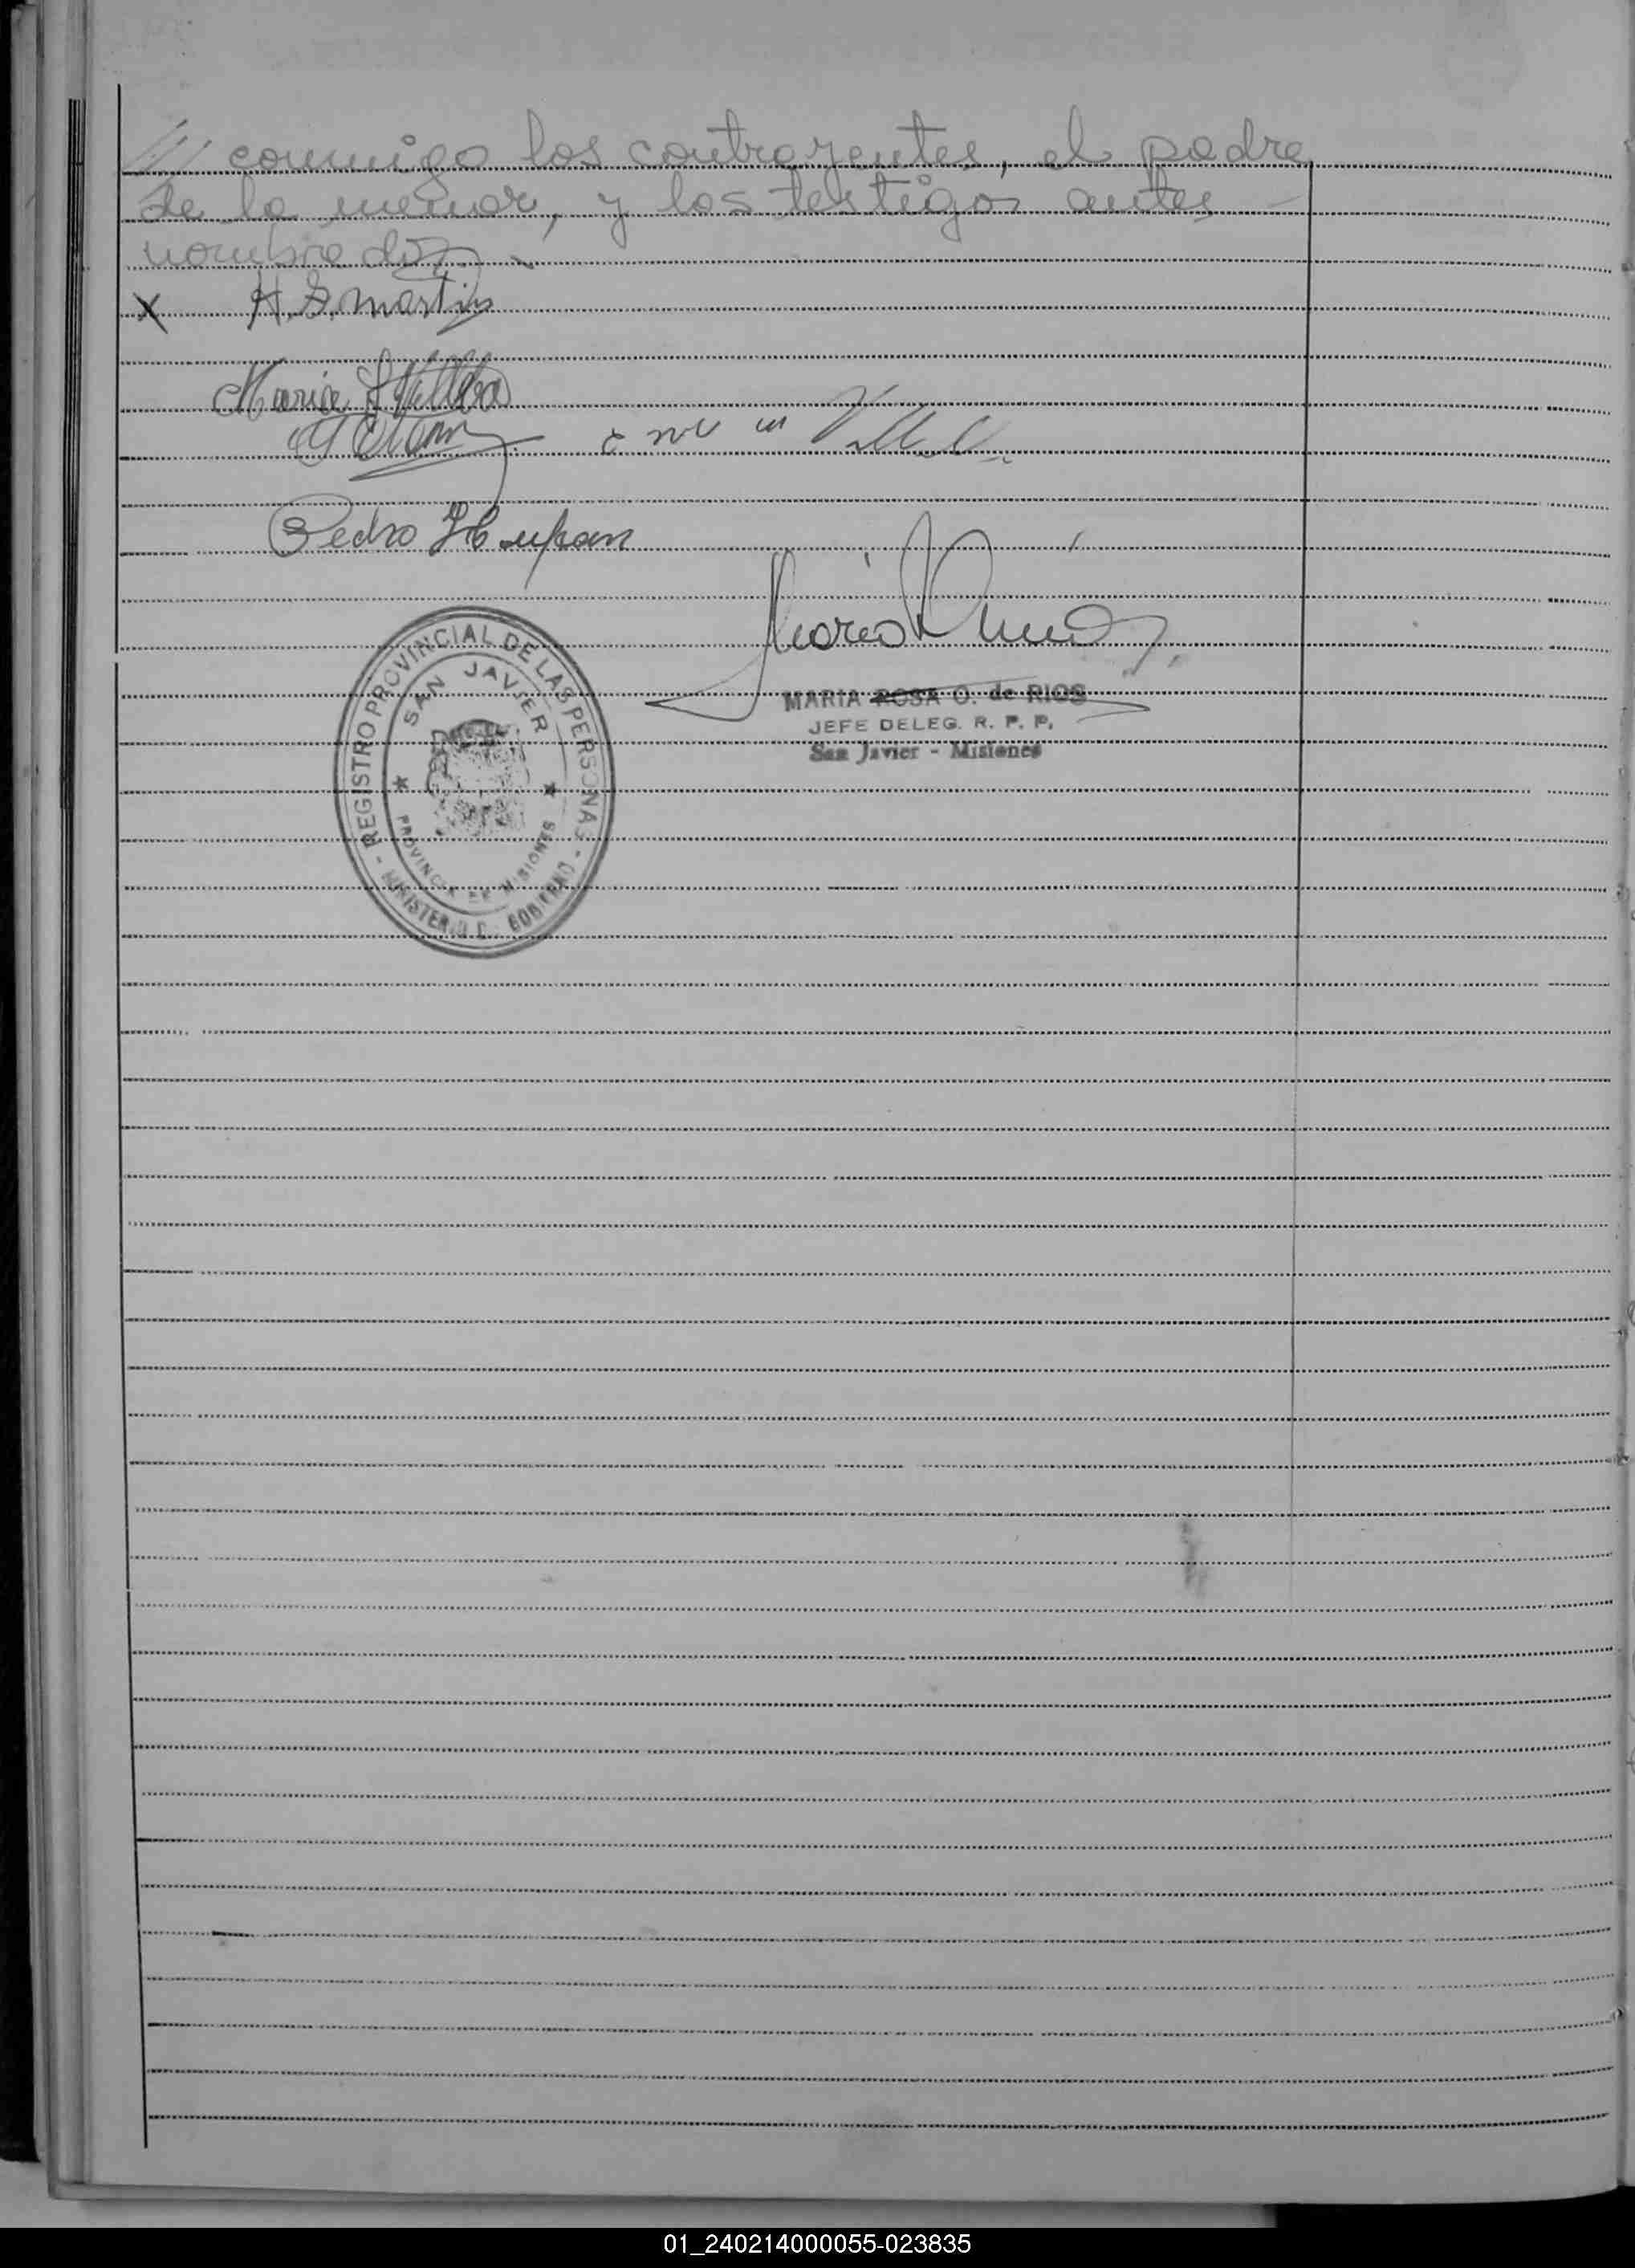 /// conmigo los contrayentes, el padre
de la menor, y los testigos antes
nombrados
X H. S. Martin
Maria Villalba
Pedro
MARIA ROSA O. de RIOS
JEFE DELEG. R. P. P.
San Javier - Misiones
REGISTRO PROVINCIAL DE LAS PERSONAS
SAN JAVIER
PROVINCIA DE MISIONES
- MINISTERIO DE GOBIERNO -
01_240214000055-023835